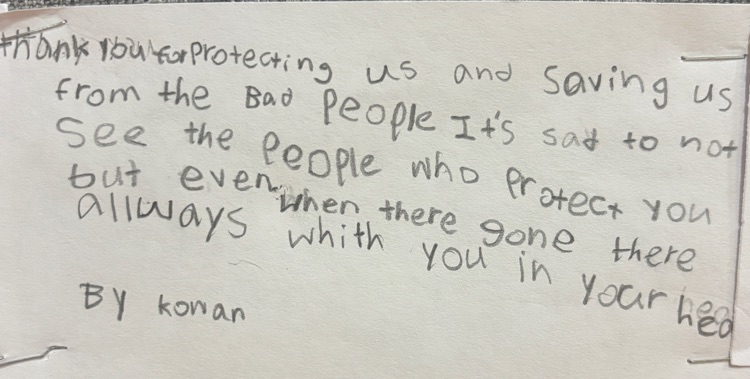 thank you for protecting us and saving us
from the Bad people It's sad to not
see the people who protect you
but even when there gone there
allways whith you in your
By